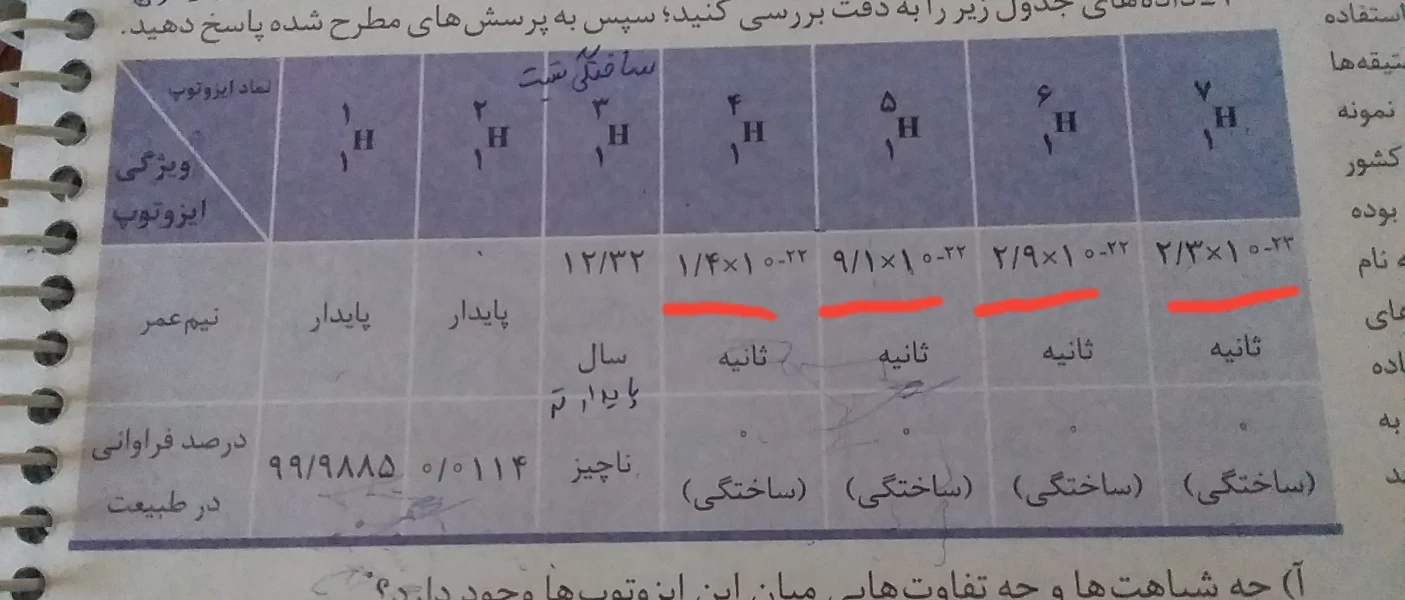 داده‌های جدول زیر را به دقت بررسی کنید؛ سپس به پرسش‌های مطرح شده پاسخ دهید.
نماد ایزوتوپ
ویژگی
ایزوتوپ
ساختگی نیست
۱ ۱ H
۲ ۱ H
۳ ۱ H
۴ ۱ H
۵ ۱ H
۶ ۱ H
۷ ۱ H
نیم‌عمر
پایدار
پایدار
۱۲/۳۲
سال
۱/۴×۱۰-۲۲
ثانیه
۹/۱×۱۰-۲۲
ثانیه
۲/۹×۱۰-۲۲
ثانیه
۲/۳×۱۰-۲۳
ثانیه
درصد فراوانی
در طبیعت
۹۹/۹۸۸۵
۰/۰۱۱۴
ناچیز
۰
(ساختگی)
۰
(ساختگی)
۰
(ساختگی)
۰
(ساختگی)
آ) چه شباهت‌ها و چه تفاوت‌هایی میان این ایزوتوپ‌ها وجود دارد؟
استفاده
نمونه
کشور
بوده
نام
به